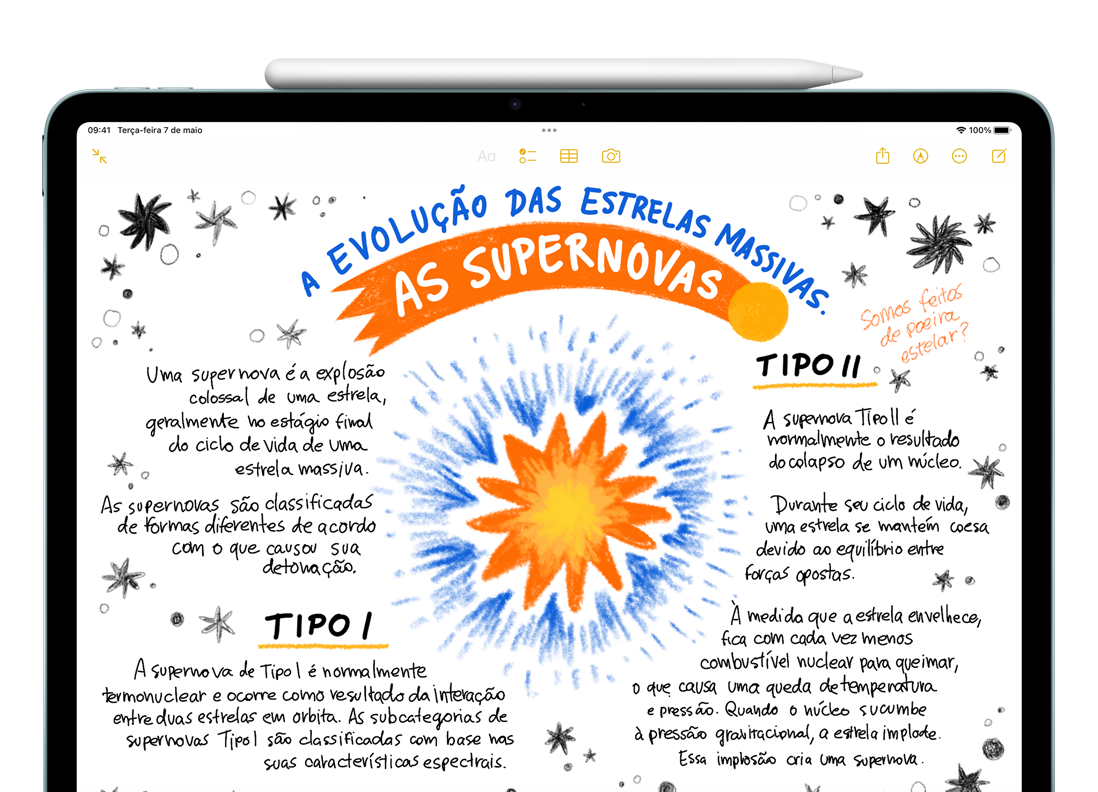 09:41 Terça-feira 7 de maio
100%
Aa
A EVOLUÇÃO DAS ESTRELAS MASSIVAS.
AS SUPERNOVAS
Somos feitos
de poeira
estelar?
Uma supernova é a explosão
colossal de uma estrela,
geralmente no estágio final
do ciclo de vida de uma
estrela massiva.
As supernovas são classificadas
de formas diferentes de acordo
com o que causou sua
detonação.
TIPO I
A supernova de Tipo I é normalmente
termonuclear e ocorre como resultado da interação
entre duas estrelas em orbita. As subcategorias de
supernovas Tipo I são classificadas com base nas
suas características espectrais.
TIPO II
A supernova Tipo II é
normalmente o resultado
do colapso de um núcleo.
Durante seu ciclo de vida,
uma estrela se mantém coesa
devido ao equilíbrio entre
forças opostas.
À medida que a estrela envelhece,
fica com cada vez menos
combustível nuclear para queimar,
o que causa uma queda de temperatura
e pressão. Quando o núcleo sucumbe
à pressão gravitacional, a estrela implode.
Essa implosão cria uma supernova.